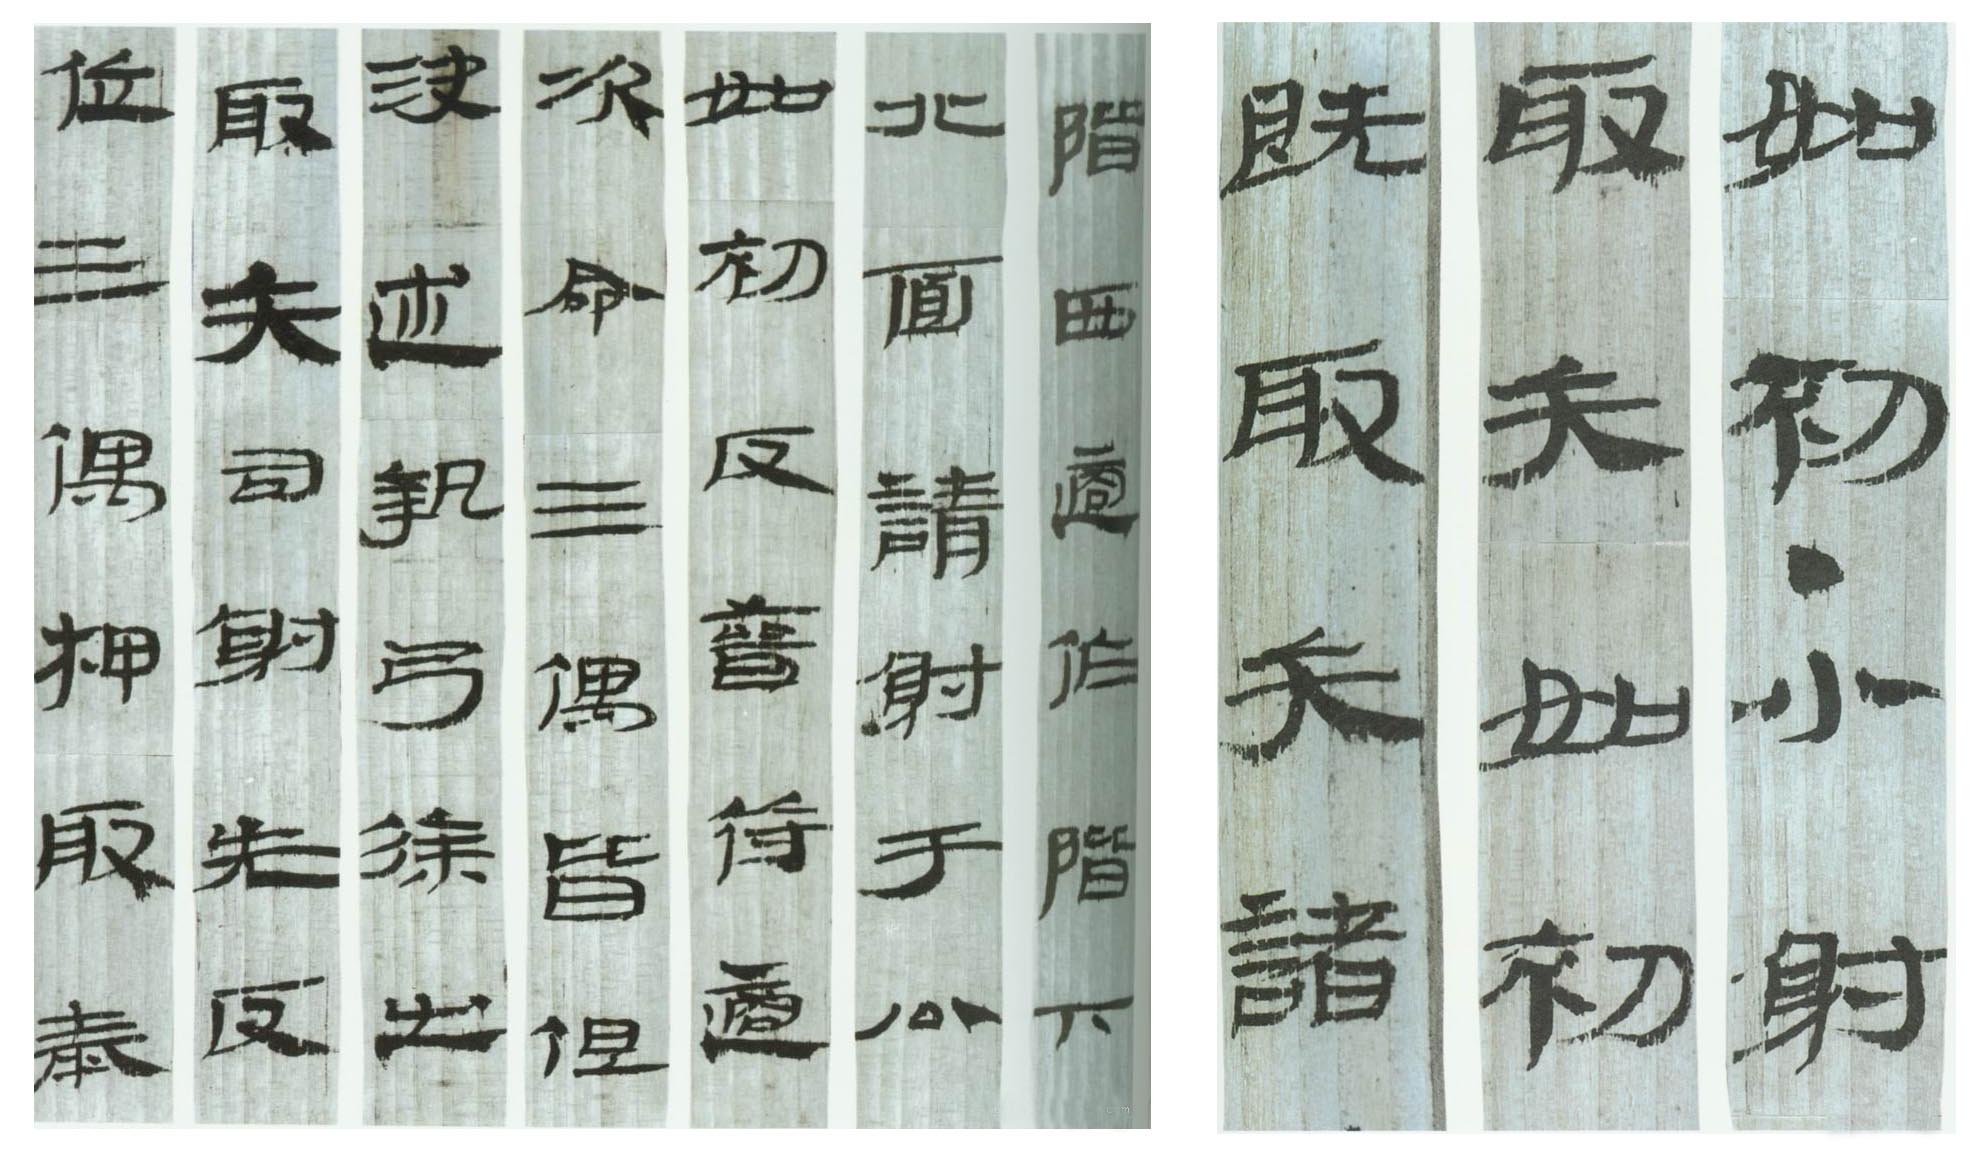 如初●小射
取矢如初
既取矢諸
階西適作階下
北面請射于公
如初反晉待適
次命三偶皆但
決述執弓徐出
取矢司射先反
位三偶押取奉